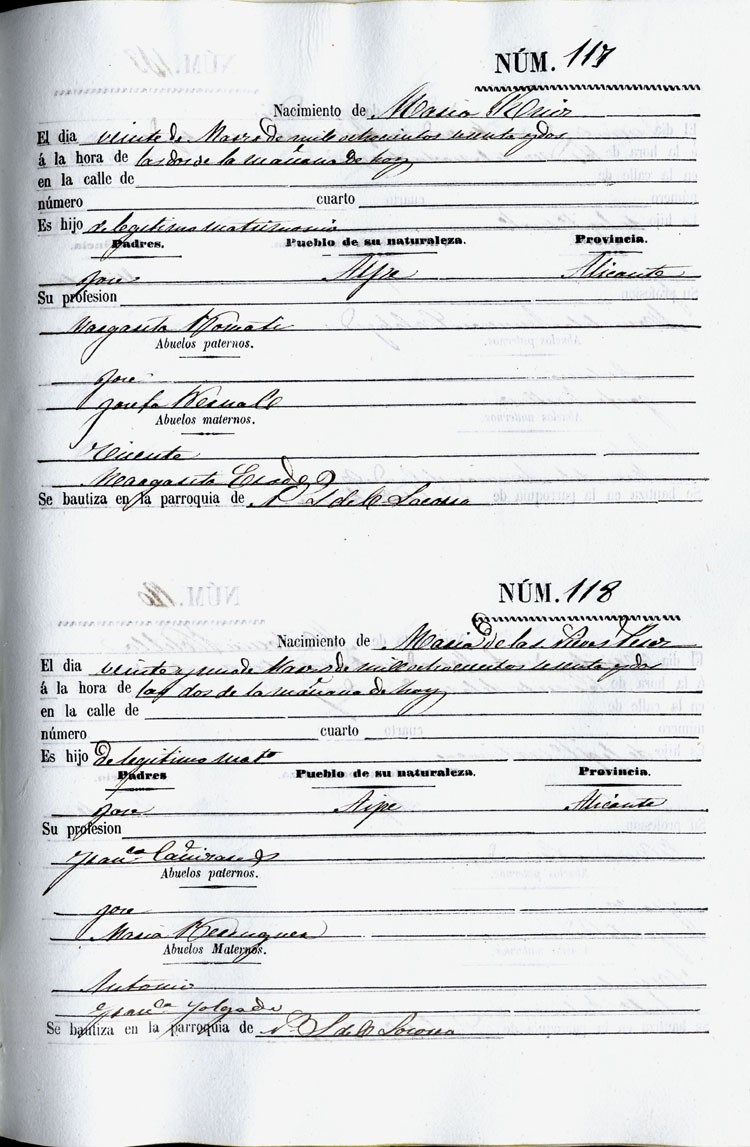 NÚM. 117
Nacimiento de Maria
El dia veinte de Marzo de mil ochocientos sesenta y dos
á la hora de las dos de la mañana de hoy
en la calle de
número cuarto
Es hijo de legitimo matrimonio
Padres. Pueblo de su naturaleza. Provincia.
Jose Aspe Alicante
Su profesion
Margarita
Abuelos paternos.
Jose
Josefa
Abuelos maternos.
Vicente
Margarita
Se bautiza en la parroquia de N. S. del Socorro
NÚM. 118
Nacimiento de Maria de las
El dia veinte y uno de Marzo de mil ochocientos sesenta y dos
á la hora de las dos de la mañana de hoy
en la calle de
número cuarto
Es hijo de legitimo mato
Padres Pueblo de su naturaleza. Provincia.
Jose Aspe Alicante
Su profesion
Franca
Abuelos paternos.
Jose
Maria
Abuelos Maternos.
Antonio
Franca
Se bautiza en la parroquia de N. S. del Socorro